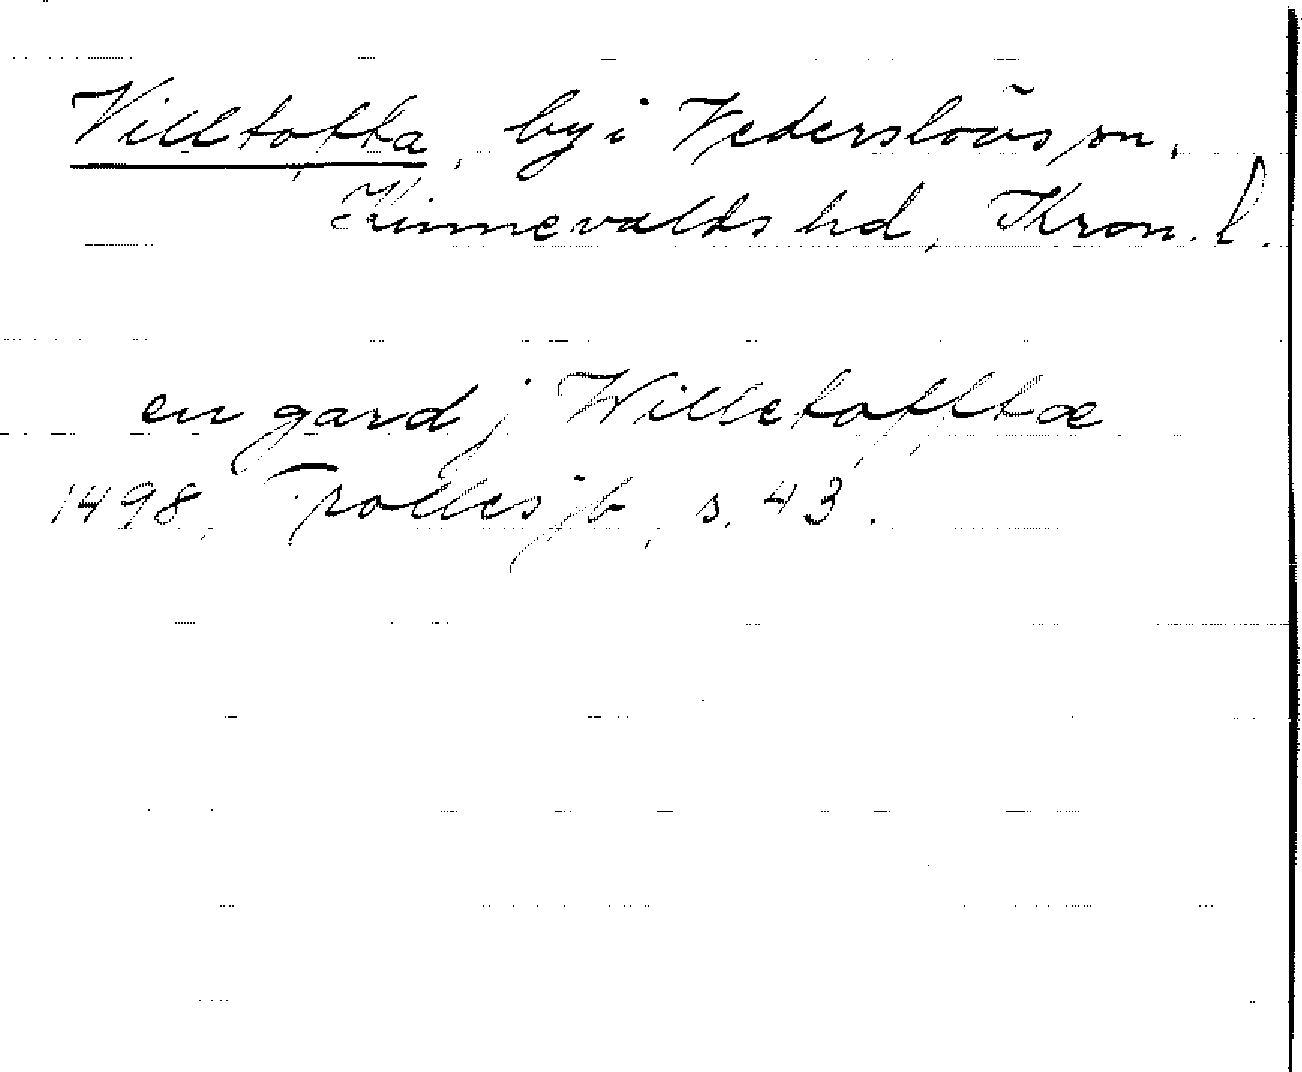 Villtofta, by i Vederslövs sn,
Kinnevalds hd, Kron. l.
en gard j Willetofltæ
1498, Trolles jb, s. 43.